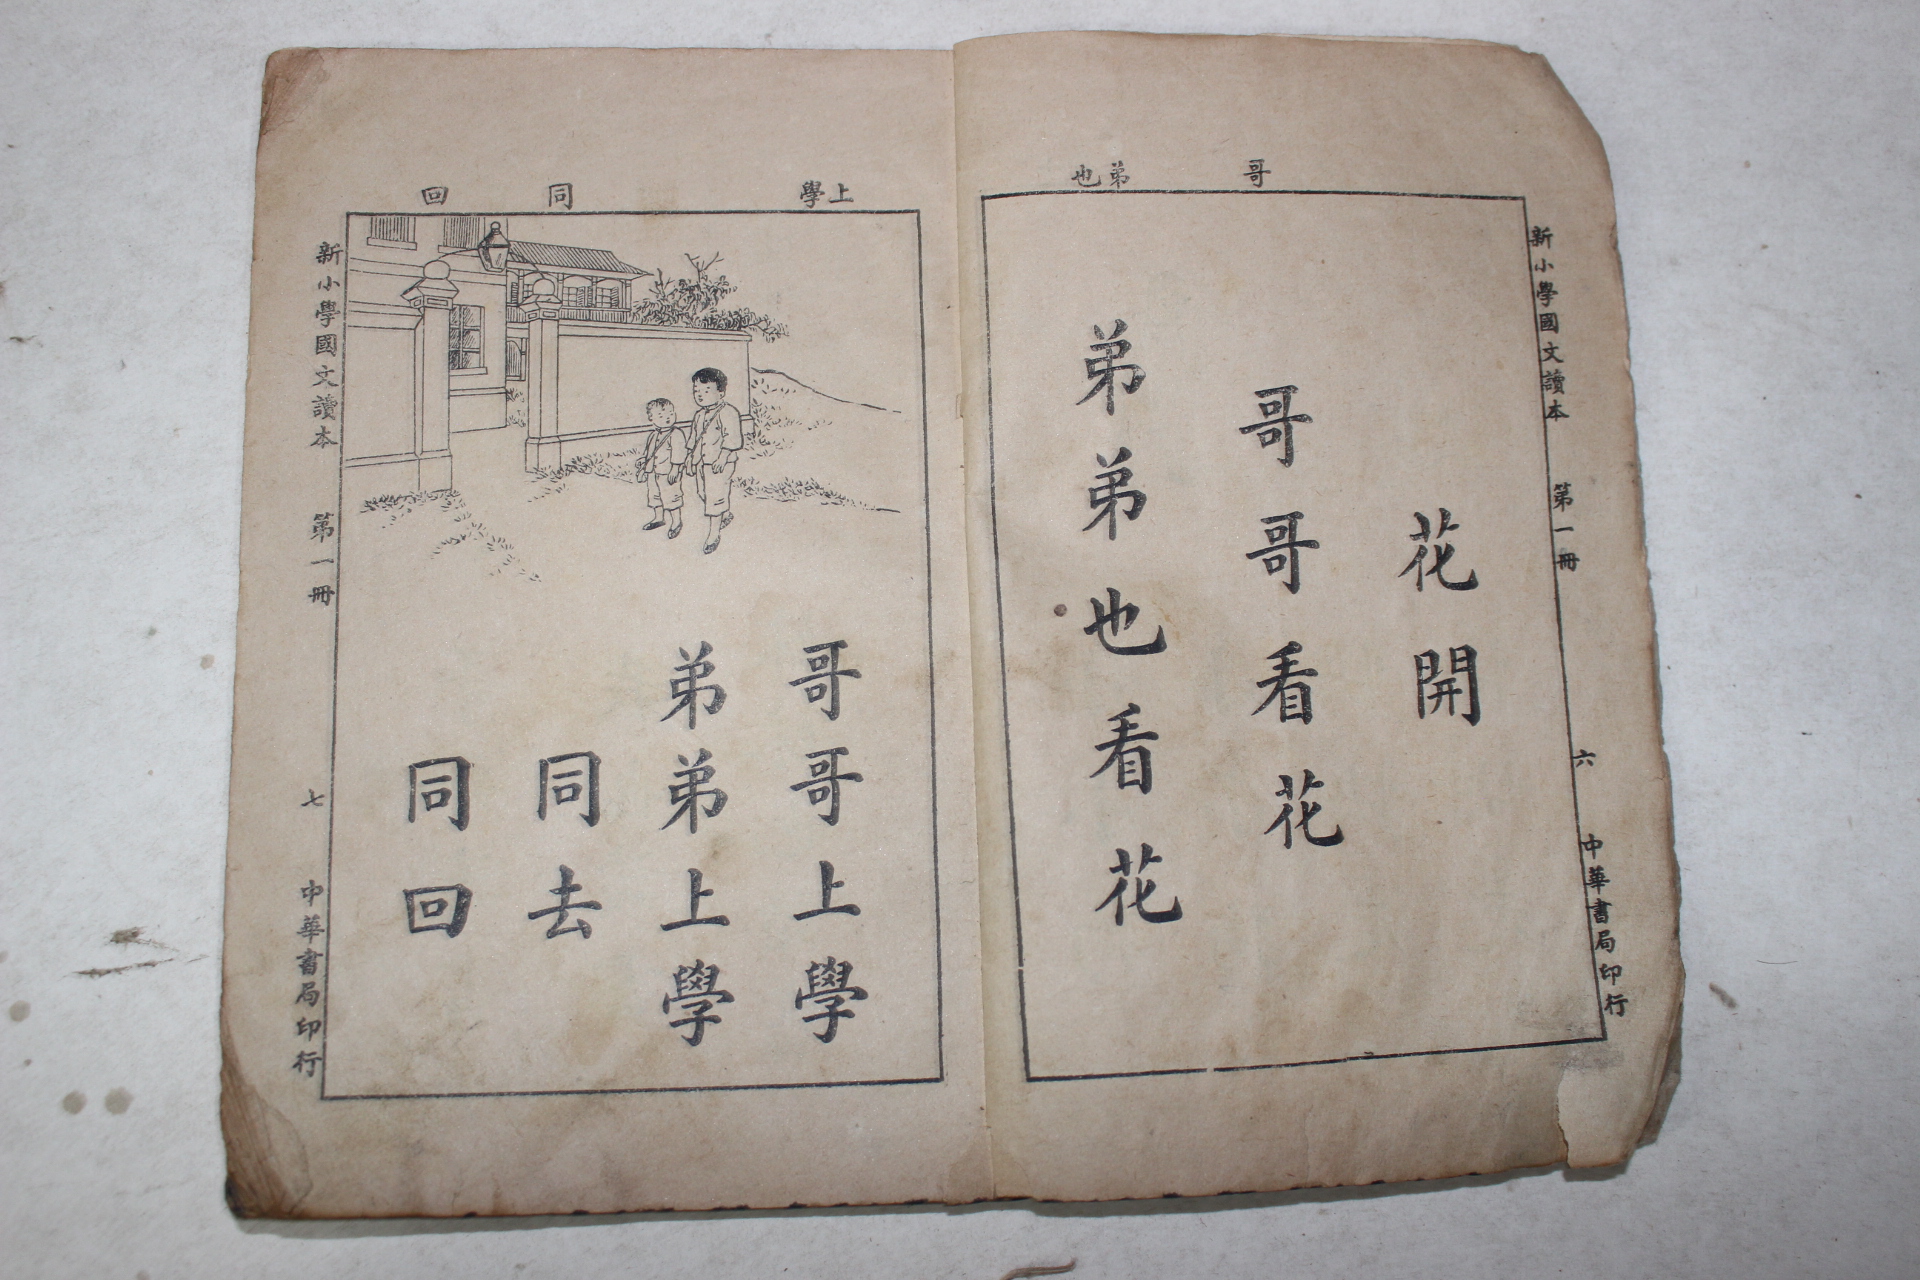 哥
弟也
新小學國文讀本 第一冊 六 中華書局印行
花開
哥哥看花
弟弟也看花
上學
同
回
哥哥上學
弟弟上學
同去
同回
新小學國文讀本 第一冊 七 中華書局印行